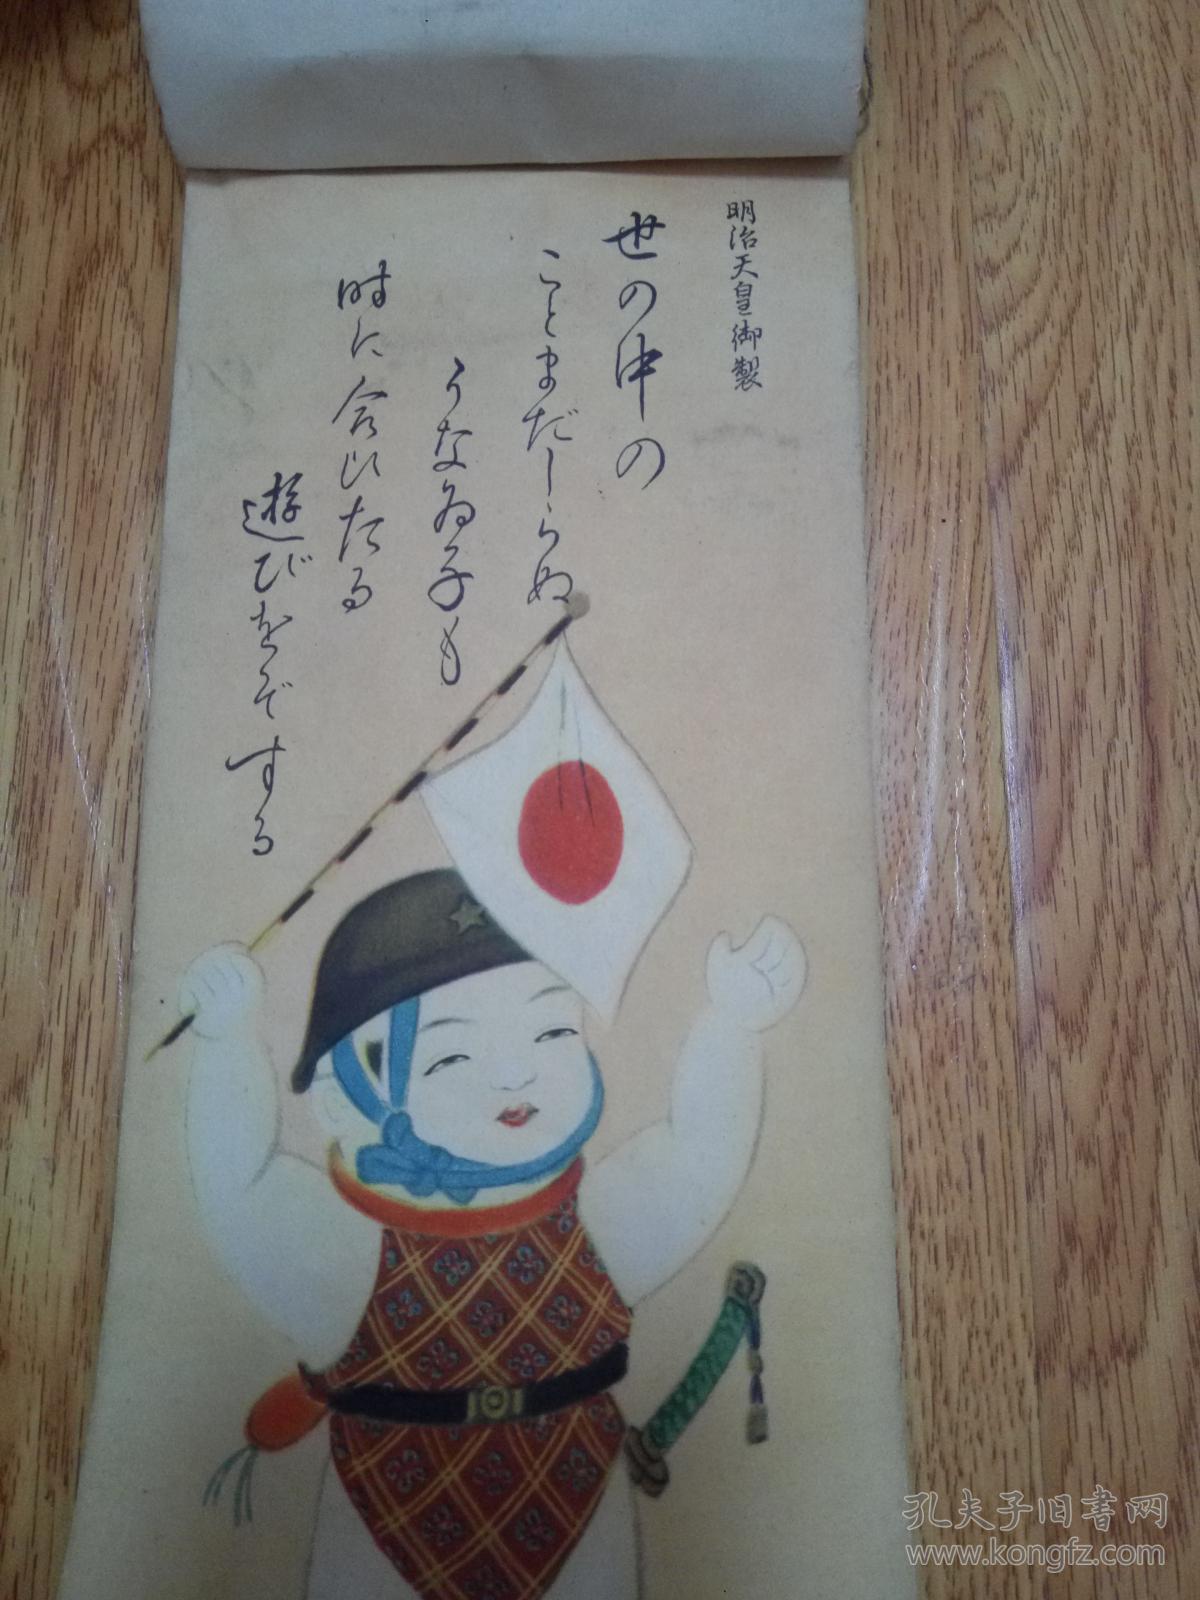 明治天皇御製
世の中の
ことまだしらぬ
うなゐ子も
時に合ひたる
遊びをぞする
孔夫子旧書网
www.kongfz.com